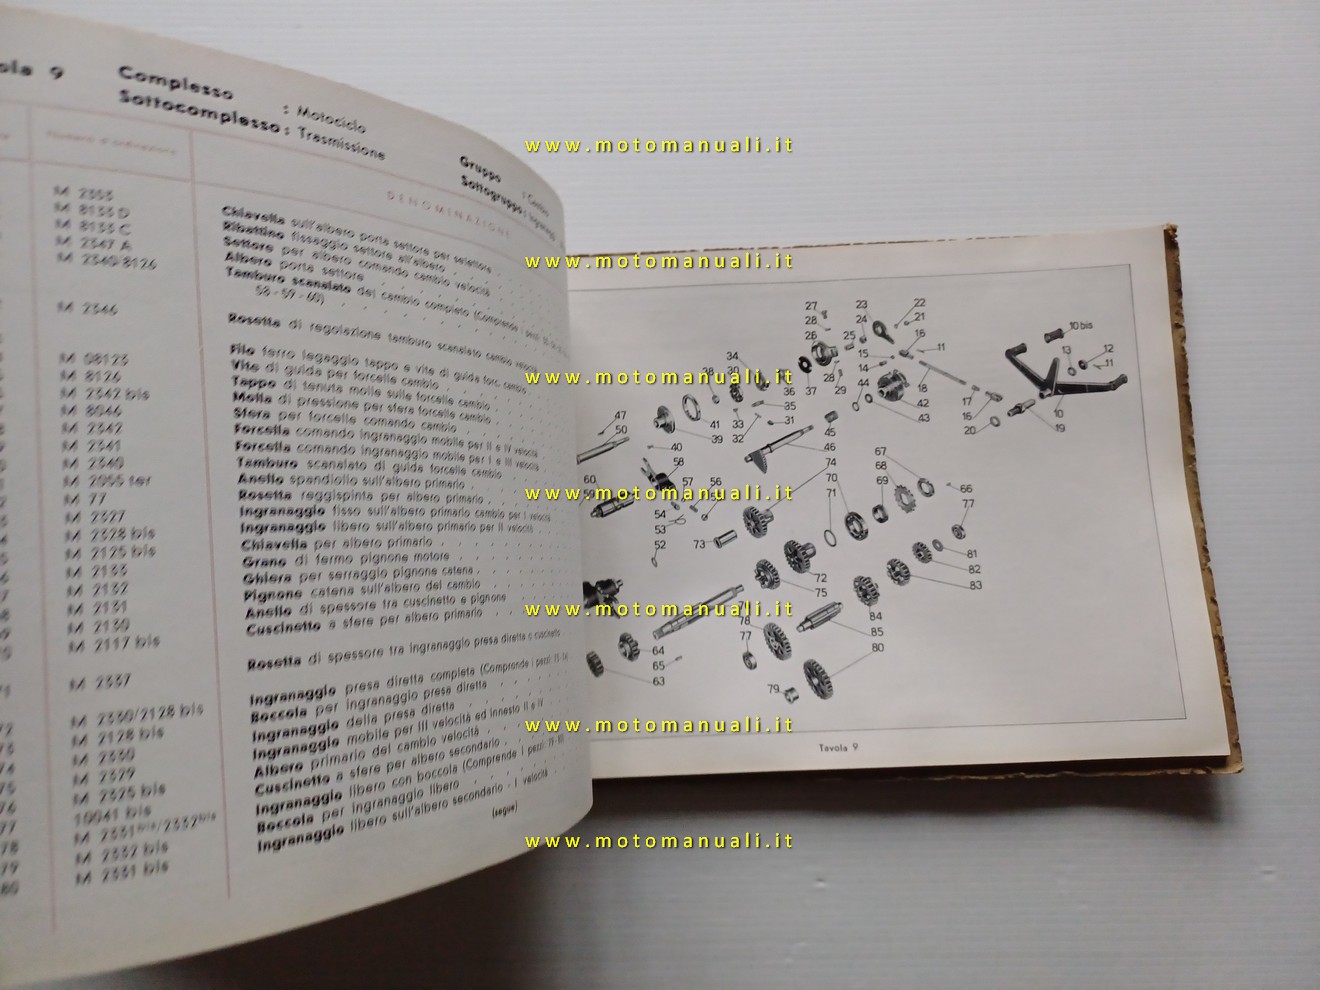 ola 9
Complesso : Motociclo
Sottocomplesso : Trasmissione
Gruppo : Cambio
Sottogruppo : Ingranaggi
Numero d'ordinazione
DENOMINAZIONE
M 2353 Chiavella sull'albero porta settore per selettore
M 8133 D Ribattino fissaggio settore all'albero
M 8133 C Settore per albero comando cambio velocità
M 2347 A Albero porta settore
M 2340/8126 Tamburo scanalato del cambio completo (Comprende i pezzi:
58 - 59 - 60)
M 2346 Rosetta di regolazione tamburo scanalato cambio velocità
M 08123 Filo ferro legaggio tappo e vite di guida forc. cambio
M 8126 Vite di guida per forcelle cambio
M 2342 bis Tappo di tenuta molle sulla forcelle cambio
M 8044 Molla di pressione per sfera forcelle cambio
M 2342 Sfera per forcelle comando cambio
M 2341 Forcella comando ingranaggio mobile per II e IV velocità
M 2340 Forcella comando ingranaggio mobile per I e III velocità
M 2055 ter Tamburo scanalato di guida forcelle cambio
M 77 Anello spandiolio sull'albero primario
M 2327 Rosetta reggispinta per albero primario
M 2328 bis Ingranaggio fisso sull'albero primario cambio per I velocità
M 2125 bis Ingranaggio libero sull'albero primario per II velocità
M 2133 Chiavella per albero primario
M 2132 Grano di fermo pignone motore
M 2131 Ghiera per serraggio pignone catena
M 2130 Pignone catena sull'albero del cambio
M 2117 bis Anello di spessore tra cuscinetto e pignone
Cuscinetto a sfere per albero primario
M 2337 Rosetta di spessore tra ingranaggio presa diretta e cuscinetto
M 2330/2128 bis Ingranaggio presa diretta completa (Comprende i pezzi: 73-74)
M 2128 bis Boccola per ingranaggio presa diretta
M 2330 Ingranaggio della presa diretta
M 2329 Ingranaggio mobile per III velocità ed innesto II e IV
M 2325 bis Albero primario del cambio velocità
10041 bis Cuscinetto a sfere per albero secondario
M 2331bis/2332bis Ingranaggio libero con boccola (Comprende i pezzi: 79-80)
M 2332 bis Boccola per ingranaggio libero
M 2331 bis Ingranaggio libero sull'albero secondario - I velocità
(segue)
72
73
74
75
76
77
78
79
80
27 23 22
28 24 21
26 25 16 11
10 bis
34 15 14 13 12 11
38 30 36 37 28 29 44 18 17 10
47 35 42 16
50 41 33 31 43 20 19
39 32 45
40 46 67
58 74 68
60 57 56 70 69 66
71 77
54
53 73
52 81
72 82
75 83
78 84
77 85
64 80
65
63 79
Tavola 9
www.motomanuali.it
www.motomanuali.it
www.motomanuali.it
www.motomanuali.it
www.motomanuali.it
www.motomanuali.it
www.motomanuali.it